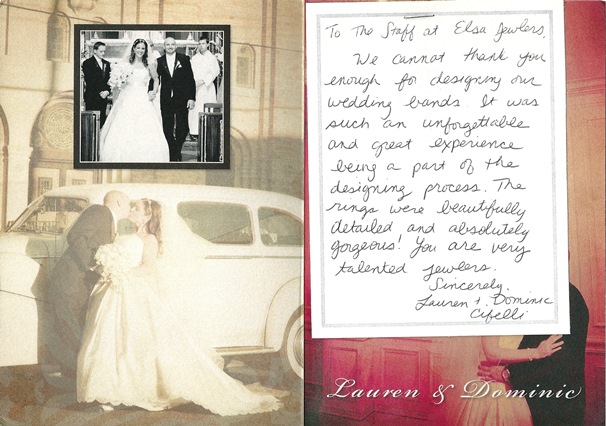 To The Staff at Elsa Jewlers,
We cannot thank you
enough for designing our
wedding bands. It was
such an unforgettable
and great experience
being a part of the
designing process. The
rings were beautifully
detailed and absolutely
gorgeous! You are very
talented jewlers.
Sincerely,
Lauren + Dominic
Cifelli
Lauren & Dominic